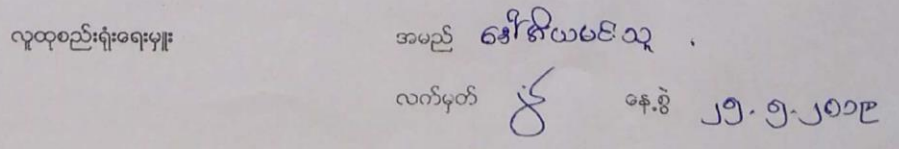 လူထုစည်းရုံးရေးမှူး အမည် ဒေါ်အိယမင်းသူ
လက်မှတ် နေ့စွဲ ၂၅.၅.၂၀၁၉